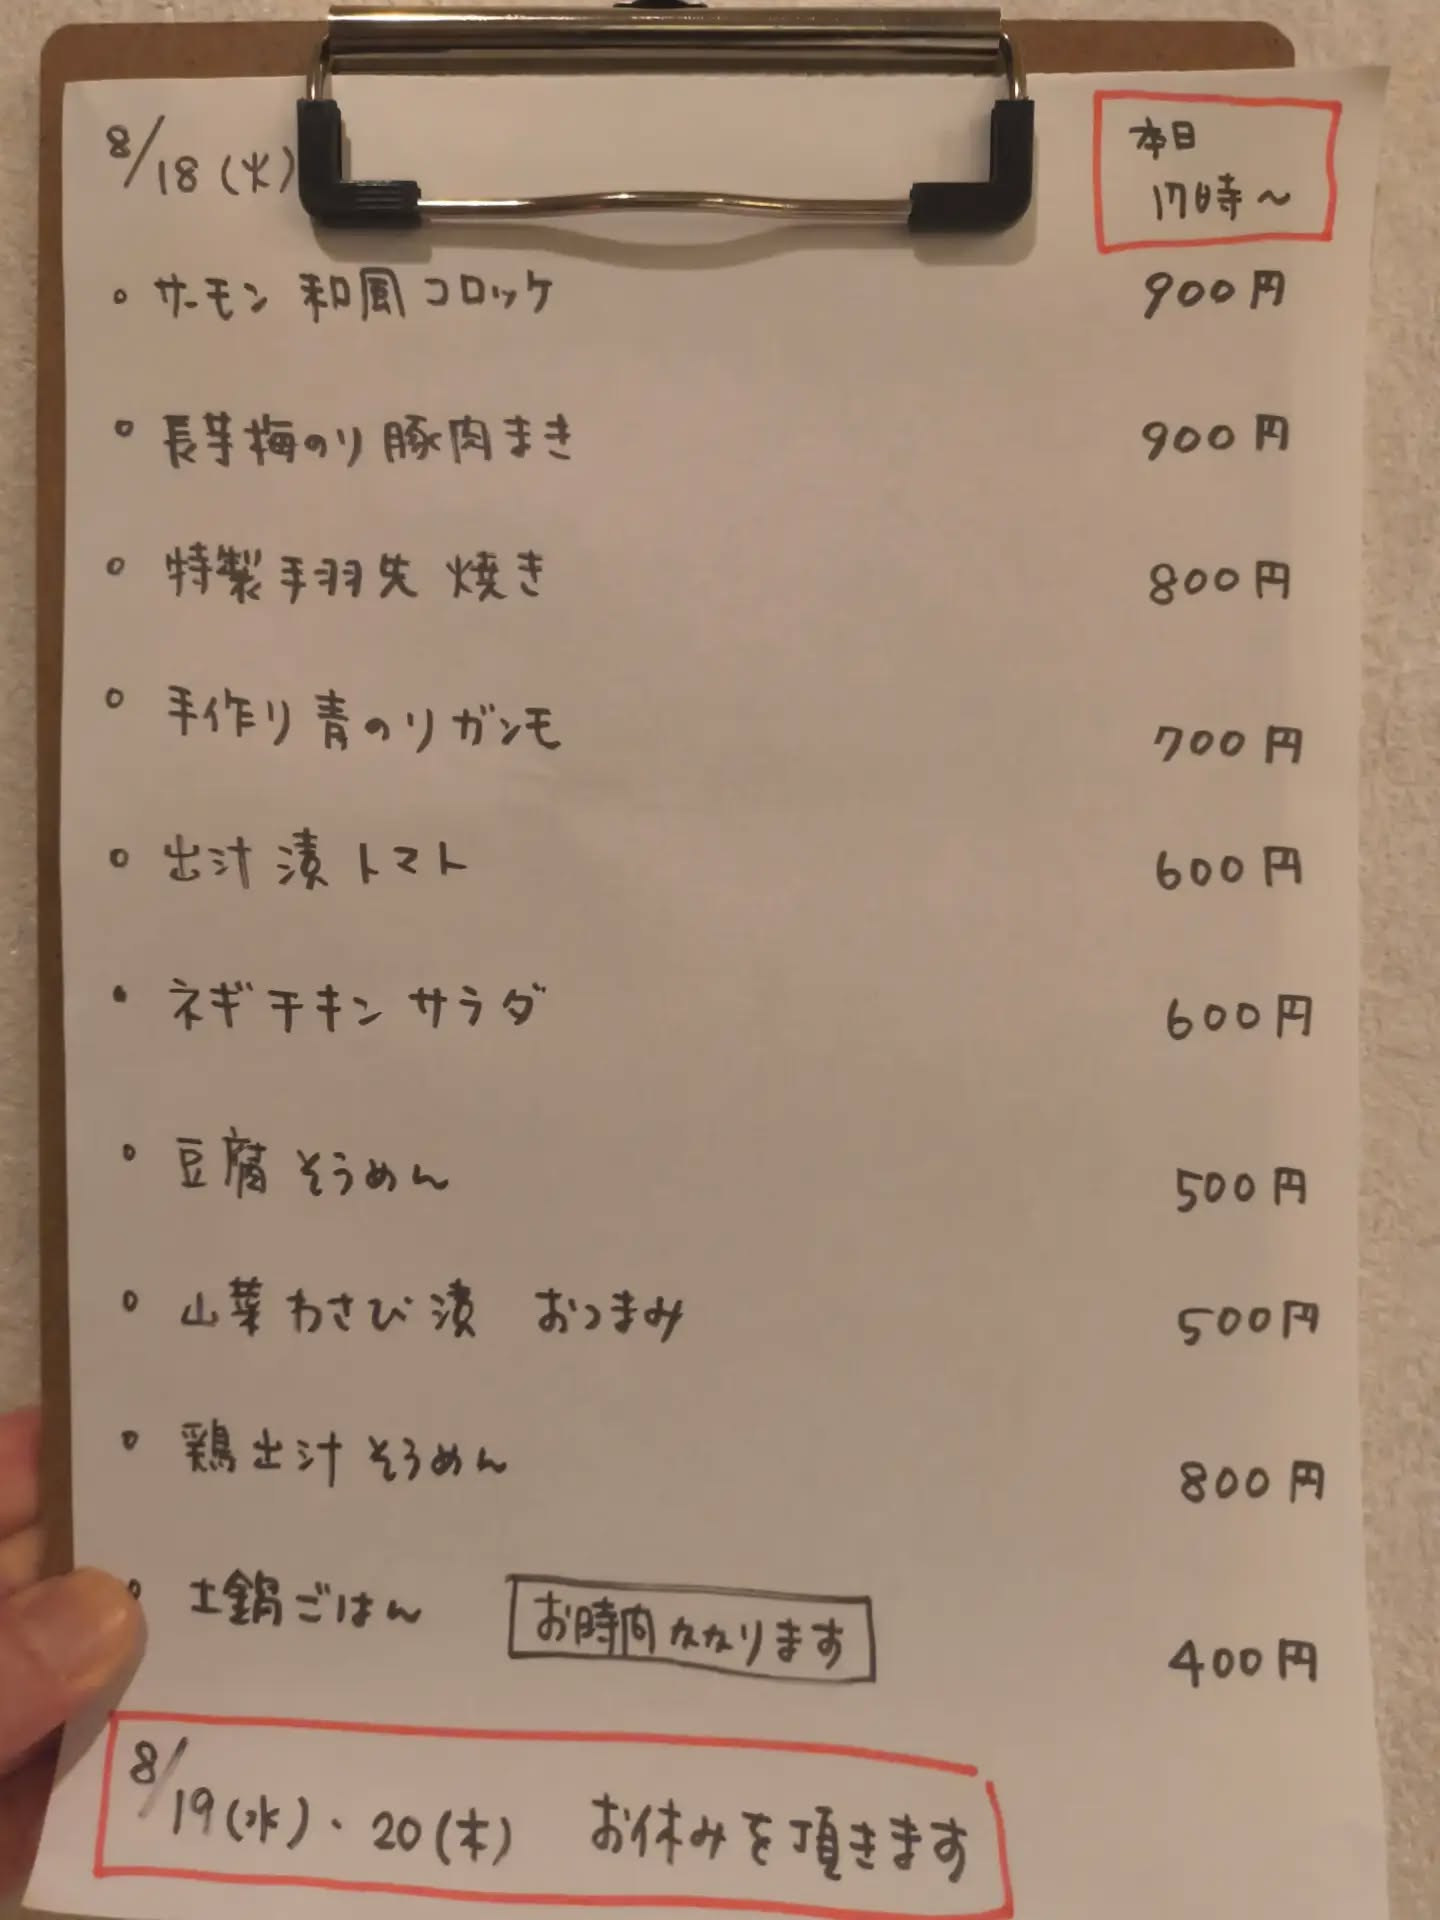 8/18(火)
本日
17時～
サーモン 和風コロッケ 900円
長芋梅のり豚肉まき 900円
特製手羽先 焼き 800円
手作り青のりガンモ 700円
出汁漬トマト 600円
ネギチキンサラダ 600円
豆腐そうめん 500円
山菜わさび漬 おつまみ 500円
鶏出汁そうめん 800円
土鍋ごはん お時間かかります 400円
8/19(水)・20(木) お休みを頂きます